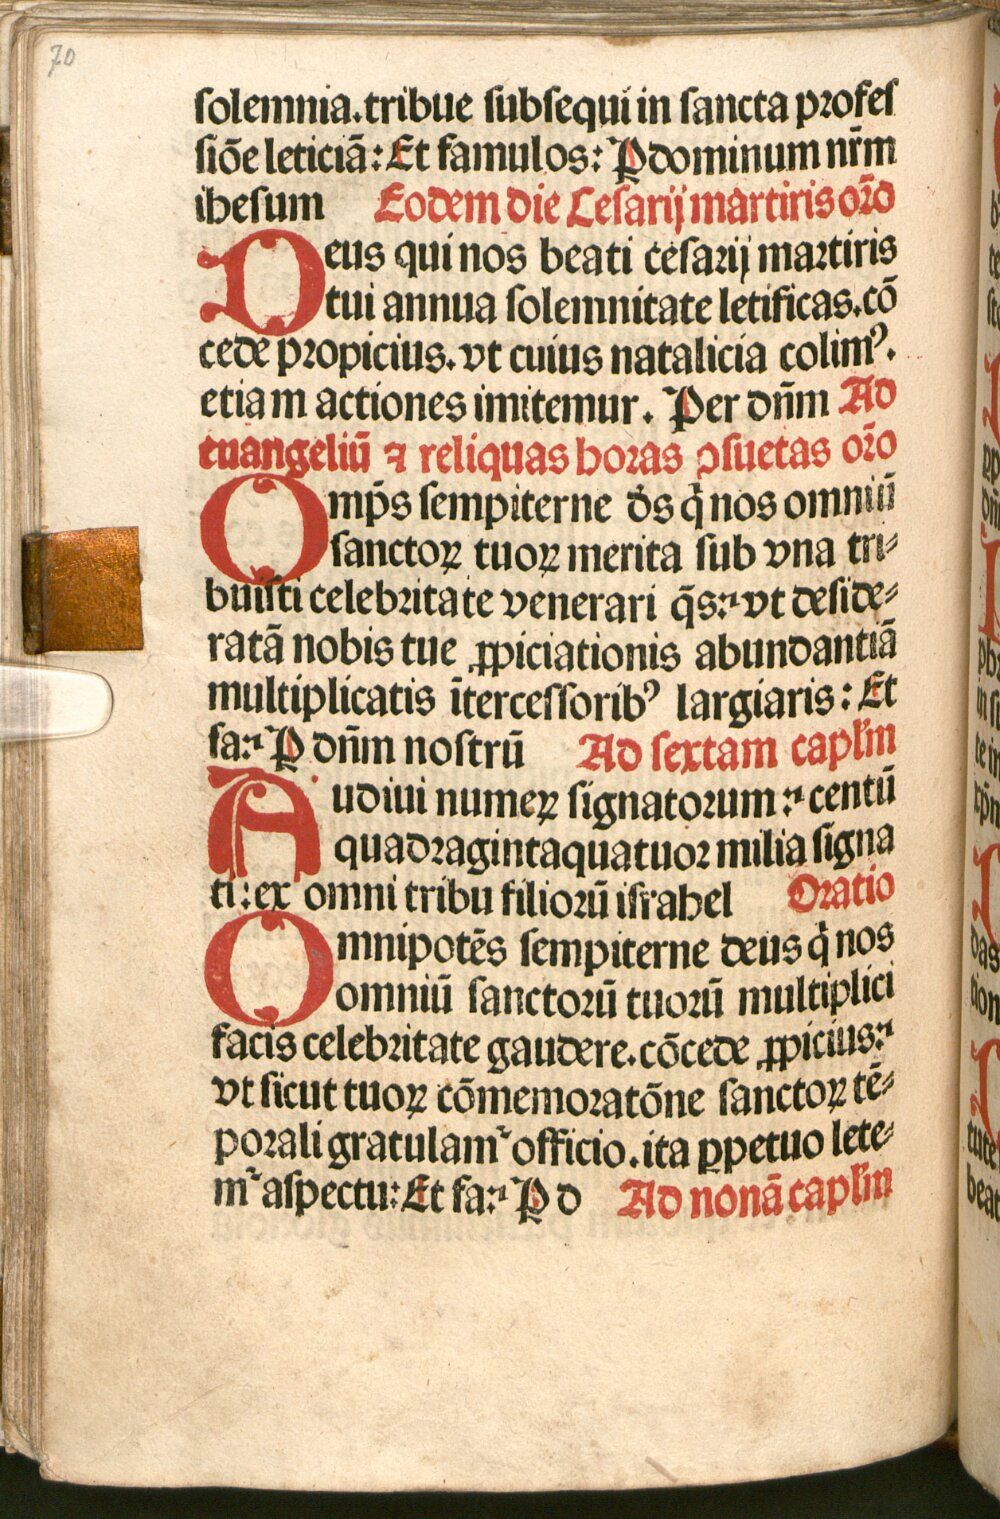 70
solemnia.tribue subsequi in sancta profes
siōe leticiā: Et famulos: P dominum nr̄m
ihesum Eodem die Cesarij martiris or̄o
Deus qui nos beati cesarij martiris
tui annua solemnitate letificas.cō
cede propicius.vt cuius natalicia colimꝰ.
etiam actiones imitemur. Per dn̄m Ad
euangeliū ⁊ reliquas horas ꝯsuetas or̄o
Omp̄s sempiterne ds̄ q̇ nos omniū
sanctoꝝ tuoꝝ merita sub vna tri⸗
buisti celebritate venerari q̄s: vt deside⸗
ratā nobis tue ꝓpiciationis abundantiā
multiplicatis ītercessoribꝰ largiaris: Et
fa: P dn̄m nostrū Ad sextam capl'm
Audiui numeꝝ signatorum: centū
quadragintaquatuor milia signa
ti: ex omni tribu filiorū israhel Oratio
Omnipotēs sempiterne deus q̇ nos
omniū sanctorū tuorū multiplici
facis celebritate gaudere.cōcede ꝓpicius:
vt sicut tuoꝝ cōmemoratōne sanctoꝝ tē⸗
porali gratulam᷑ officio.ita ꝑpetuo lete⸗
m᷑ aspectu: Et fa: P d Ad nonā capl'm